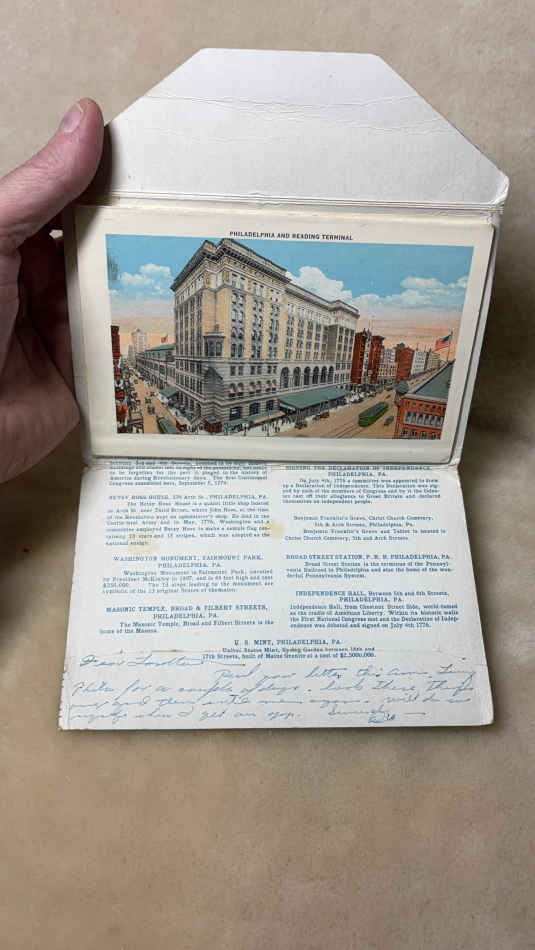 PHILADELPHIA AND READING TERMINAL
to be forgotten for the part it played in the history of
America during Revolutionary days. The first Continental
Congress assembled here, September 5, 1774.
BETSY ROSS HOUSE, 239 Arch St., PHILADELPHIA, PA.
The Betsy Ross House is a quaint little shop located
on Arch St. near Third Street, where John Ross, at the time
of the Revolution kept an upholsterer's shop. He died in the
Continental Army and in May, 1776, Washington and a
committee employed Betsy Ross to make a sample flag con-
taining 13 stars and 13 stripes, which was adopted as the
national ensign.
WASHINGTON MONUMENT, FAIRMOUNT PARK,
PHILADELPHIA, PA.
Washington Monument in Fairmount Park, unveiled
by President McKinley in 1897, and is 44 feet high and cost
$250,000. The 13 steps leading to the monument are
symbolic of the 13 original States of the Union.
MASONIC TEMPLE, BROAD & FILBERT STREETS,
PHILADELPHIA, PA.
The Masonic Temple, Broad and Filbert Streets, is the
home of the Masons.
SIGNING THE DECLARATION OF INDEPENDENCE,
PHILADELPHIA, PA.
On July 4th, 1776 a committee was appointed to form
up a Declaration of Independence. This Declaration was sig-
ned by each of the members of Congress and by it the Colon-
ies cast off their allegiance to Great Britain and declared
themselves an independent people.
Benjamin Franklin's Grave, Christ Church Cemetery,
5th & Arch Streets, Philadelphia, Pa.
Benjamin Franklin's Grave and Tablet is located in
Christ Church Cemetery, 5th and Arch Streets.
BROAD STREET STATION, P. R. R. PHILADELPHIA, PA.
Broad Street Station is the terminus of the Pennsyl-
vania Railroad in Philadelphia and also the home of the won-
derful Pennsylvania System.
INDEPENDENCE HALL, Between 5th and 6th Streets,
PHILADELPHIA, PA.
Independence Hall, from Chestnut Street Side, world-famed
as the cradle of American Liberty. Within its historic walls
the First National Congress met and the Declaration of Indep-
endence was debated and signed on July 4th 1776.
U. S. MINT, PHILADELPHIA, PA.
United States Mint, Spring Garden between 16th and
17th Streets, built of Maine Granite at a cost of $2,500,000.
Dear
your letter this
Phila for a couple of days.
when I get an Sincerely
Bill